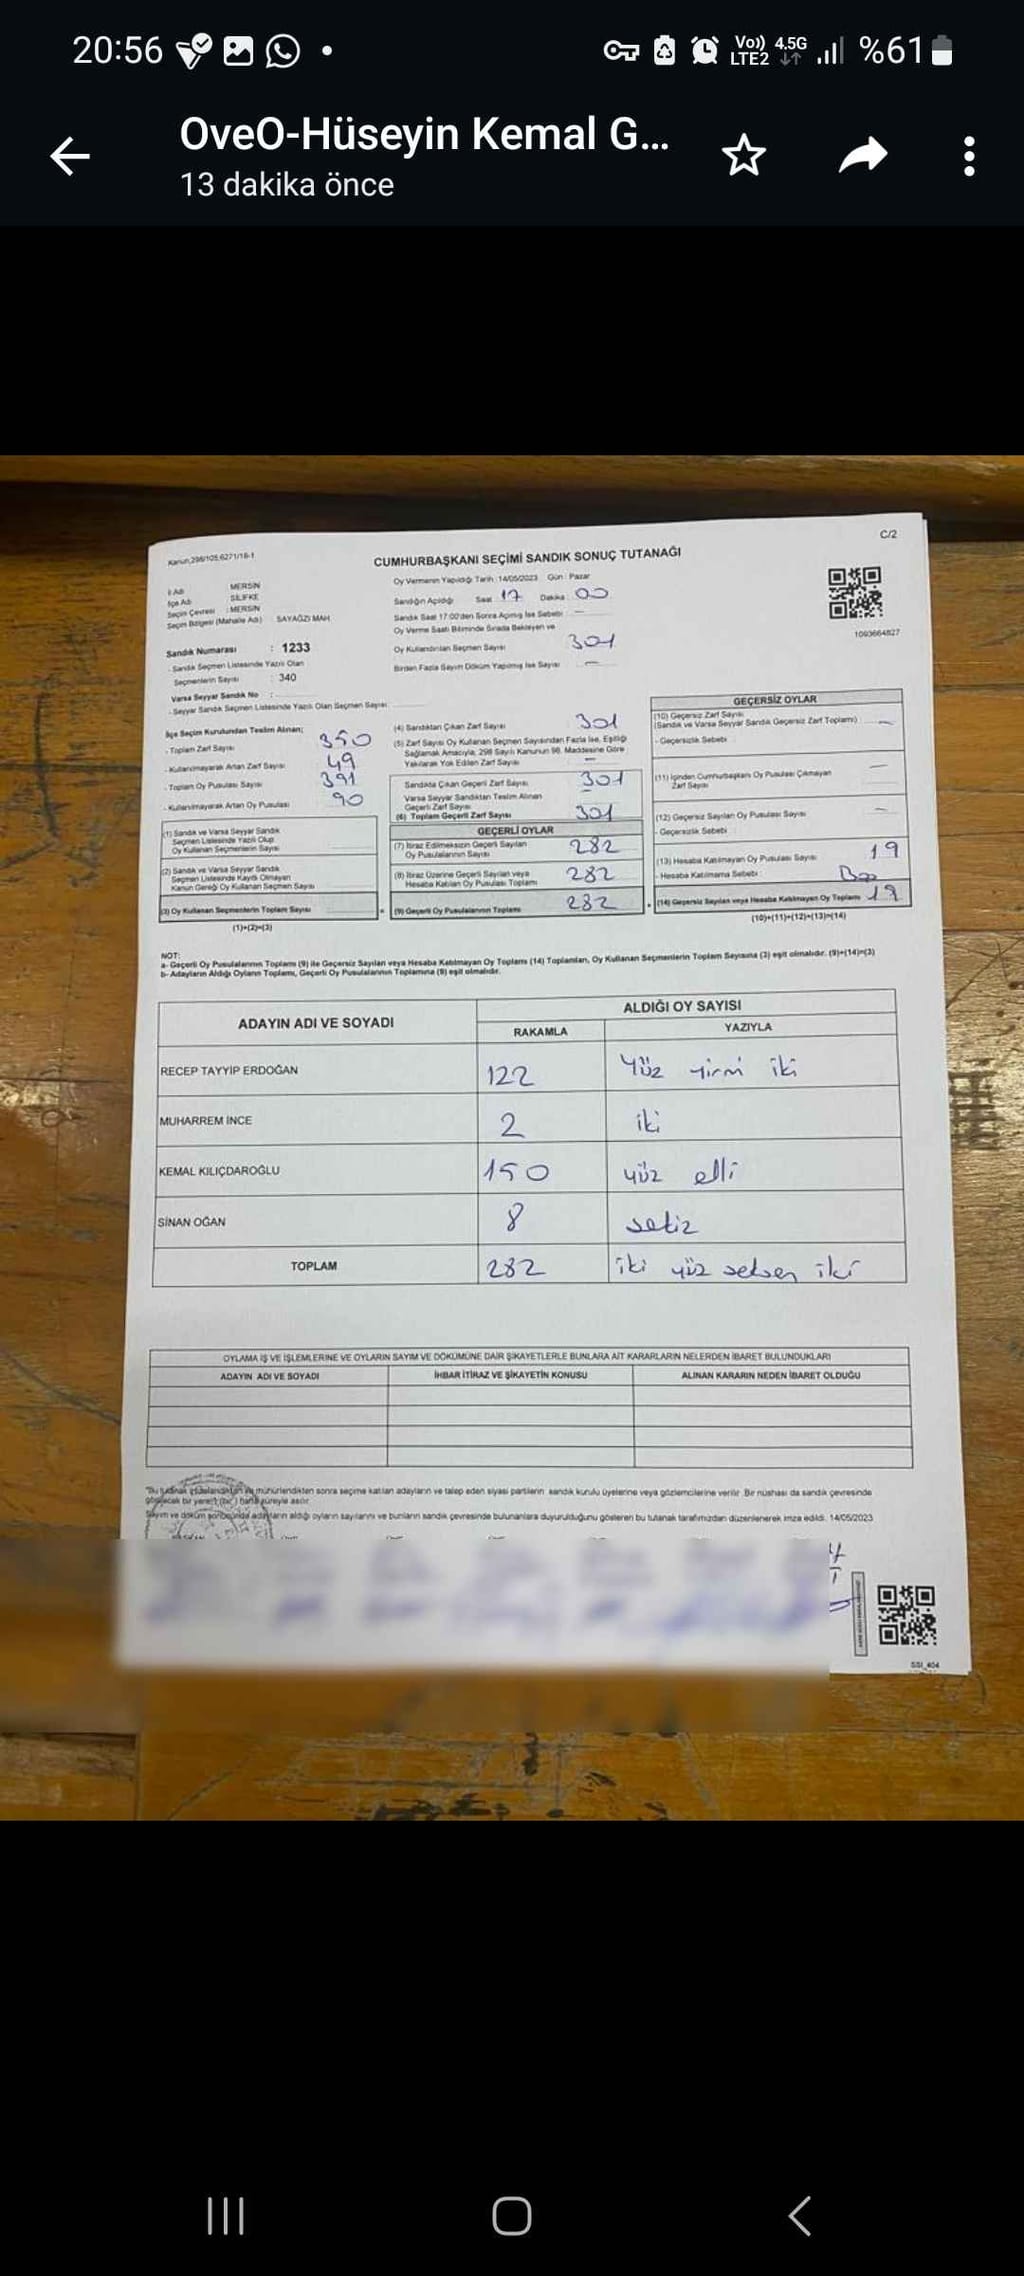 20:56
Vo)) LTE2 4.5G %61
OveO-Hüseyin Kemal G...
13 dakika önce
C/2
Kanun;298/105,6271/16-1
CUMHURBAŞKANI SEÇİMİ SANDIK SONUÇ TUTANAĞI
İl Adı MERSİN
İlçe Adı SİLİFKE
Seçim Çevresi : MERSİN
Seçim Bölgesi (Mahalle Adı) SAYAĞZI MAH.
Sandık Numarası : 1233
- Sandık Seçmen Listesinde Yazılı Olan
Seçmenlerin Sayısı : 340
Varsa Seyyar Sandık No :
- Seyyar Sandık Seçmen Listesinde Yazılı Olan Seçmen Sayısı:
Oy Vermenin Yapıldığı Tarih :14/05/2023 Gün : Pazar
Sandığın Açıldığı Saat 17 Dakika 00
Sandık Saat 17:00'den Sonra Açılmış İse Sebebi: —
Oy Verme Saati Bitiminde Sırada Bekleyen ve
Oy Kullandırılan Seçmen Sayısı 301
Birden Fazla Sayım Döküm Yapılmış İse Sayısı —
1093664827
İlçe Seçim Kurulundan Teslim Alınan;
- Toplam Zarf Sayısı 350
- Kullanılmayarak Artan Zarf Sayısı 49
- Toplam Oy Pusulası Sayısı 391
- Kullanılmayarak Artan Oy Pusulası 90
(1) Sandık ve Varsa Seyyar Sandık
Seçmen Listesinde Yazılı Olup
Oy Kullanan Seçmenlerin Sayısı
(2) Sandık ve Varsa Seyyar Sandık
Seçmen Listesinde Kayıtlı Olmayan
Kanun Gereği Oy Kullanan Seçmen Sayısı
(3) Oy Kullanan Seçmenlerin Toplam Sayısı
(1)+(2)=(3)
(4) Sandıktan Çıkan Zarf Sayısı 301
(5) Zarf Sayısı Oy Kullanan Seçmen Sayısından Fazla İse, Eşitliği
Sağlamak Amacıyla, 298 Sayılı Kanunun 98. Maddesine Göre
Yakılarak Yok Edilen Zarf Sayısı —
Sandıkta Çıkan Geçerli Zarf Sayısı 301
Varsa Seyyar Sandıktan Teslim Alınan
Geçerli Zarf Sayısı —
(6) Toplam Geçerli Zarf Sayısı 301
GEÇERLİ OYLAR
(7) İtiraz Edilmeksizin Geçerli Sayılan
Oy Pusulalarının Sayısı 282
(8) İtiraz Üzerine Geçerli Sayılan veya
Hesaba Katılan Oy Pusulası Toplamı 282
(9) Geçerli Oy Pusulalarının Toplamı 282
GEÇERSİZ OYLAR
(10) Geçersiz Zarf Sayısı
(Sandık ve Varsa Seyyar Sandık Geçersiz Zarf Toplamı) —
- Geçersizlik Sebebi :
(11) İçinden Cumhurbaşkanı Oy Pusulası Çıkmayan
Zarf Sayısı —
(12) Geçersiz Sayılan Oy Pusulası Sayısı —
- Geçersizlik Sebebi :
(13) Hesaba Katılmayan Oy Pusulası Sayısı 19
- Hesaba Katılmama Sebebi :
(14) Geçersiz Sayılan veya Hesaba Katılmayan Oy Toplamı 19
(10)+(11)+(12)+(13)=(14)
NOT:
a- Geçerli Oy Pusulalarının Toplamı (9) ile Geçersiz Sayılan veya Hesaba Katılmayan Oy Toplamı (14) Toplamları, Oy Kullanan Seçmenlerin Toplam Sayısına (3) eşit olmalıdır. (9)+(14)=(3)
b- Adayların Aldığı Oyların Toplamı, Geçerli Oy Pusulalarının Toplamına (9) eşit olmalıdır.
ADAYIN ADI VE SOYADI ALDIĞI OY SAYISI
RAKAMLA YAZIYLA
RECEP TAYYİP ERDOĞAN 122 Yüz yirmi iki
MUHARREM İNCE 2 iki
KEMAL KILIÇDAROĞLU 150 yüz elli
SİNAN OĞAN 8 sekiz
TOPLAM 282 iki yüz seksen iki
OYLAMA İŞ VE İŞLEMLERİNE VE OYLARIN SAYIM VE DÖKÜMÜNE DAİR ŞİKAYETLERLE BUNLARA AİT KARARLARIN NELERDEN İBARET BULUNDUKLARI
ADAYIN ADI VE SOYADI İHBAR İTİRAZ VE ŞİKAYETİN KONUSU ALINAN KARARIN NEDEN İBARET OLDUĞU
"Bu tutanak imzalandıktan ve mühürlendikten sonra seçime katılan adayların ve talep eden siyasi partilerin sandık kurulu üyelerine veya gözlemcilerine verilir. Bir nüshası da sandık çevresinde
görülecek bir yere 1 (bir) hafta süreyle asılır.
Sayım ve döküm sonucunda adayların aldığı oyların sayılarını ve bunların sandık çevresinde bulunanlara duyurulduğunu gösteren bu tutanak tarafımızdan düzenlenerek imza edildi. 14/05/2023
SSI_404